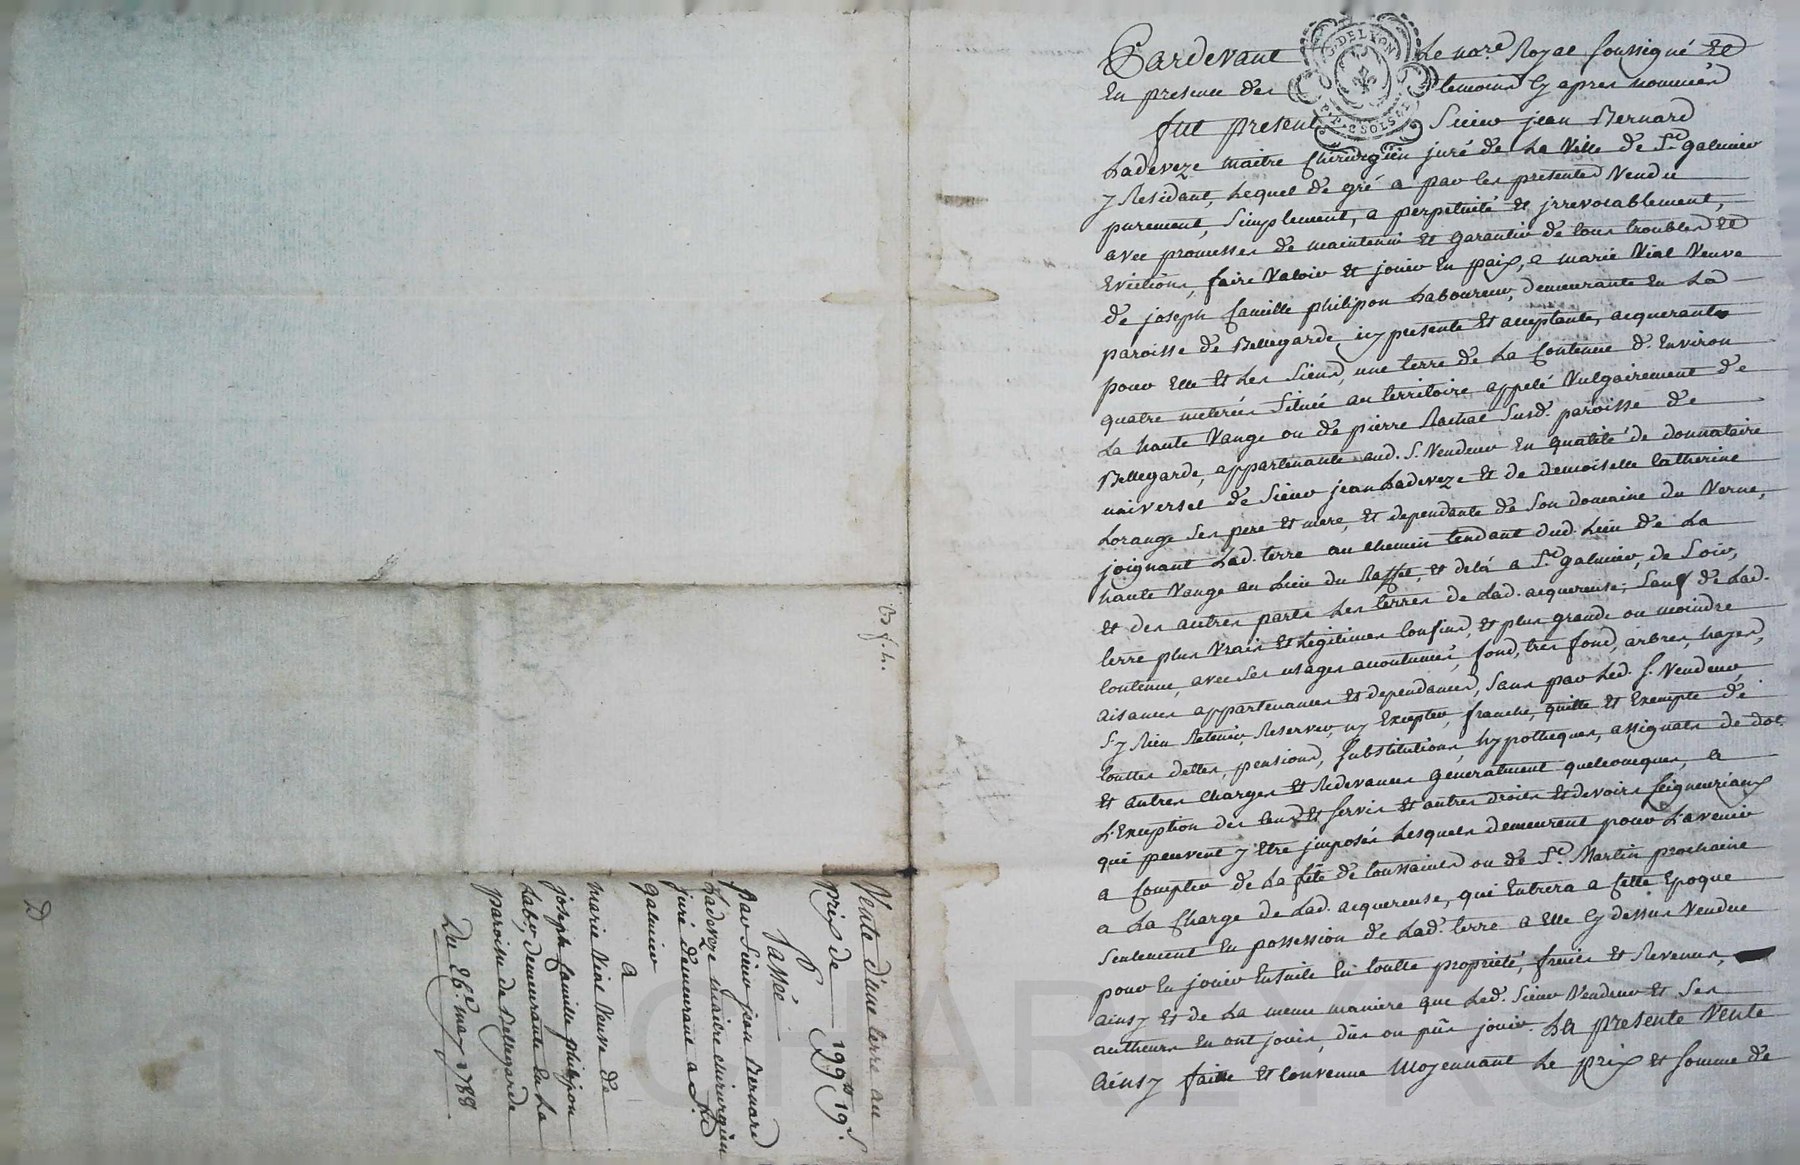 Pardevant Le nore. Royal soussigné et
En presence des temoins Cy apres nommés
fut present Sieur jean Bernard
Ladeveze maitre chirurgien juré de La Ville de St. galmier
y Residant, Lequel de gré a par les presentes Vendu
purement, simplement, a perpetuité et jrrevocablement,
avec promesses de maintenir et garantir de tous troubles et
Evictions, faire Valoir et jouir En paix, a marie Vial Veuve
de joseph famille philipon Laboureur, demeurante En La
paroisse de Bellegarde icy presente et acceptante, acquerante
pour Elle et Les siens, une terre de La Contenue d'Environ
quatre meterées située au territoire appelé Vulgairement de
La haute Vange ou de pierre Rachat susd. paroisse de
Bellegarde, appartenante aud. S. Vendeur En qualité de donnataire
universel de Sieur jean Ladeveze et de demoiselle Catherine
Lorange ses pere et mere, et dependante de son domaine du Verne,
joignant Lad. terre au chemin tendant dud. Lieu de La
haute Vange au Lieu du Raffet, et delà a St. galmier, de soir,
et des autres parts Les terres de Lad. acquereuse; sauf de Lad.
terre plus Vrais et Legitimes Confins, et plus grande ou moindre
Contenue, avec ses usages accoutumés, fond, tres fond, arbres, hayes,
aisances appartenances et dependances, sans par Led. S. Vendeur
s'y Rien Retenir, Reserver, ny Excepter, franche, quitte et Exempte de
touttes dettes, pensions, substitutions, hypotheques, assignats de dot
et autres charges et Redevances generalment quelconques, a
L'Exception des cens et servis et autres droits et devoirs seigneuriaux
qui peuvent y être jmposés Lesquels demeurent pour L'avenir
a Compter de La fête de toussaints ou de St. Martin prochaine
a La Charge de Lad. acquereuse, qui Entrera a Cette Epoque
seulement En possession de Lad. terre a Elle Cy dessus Vendue
pour En jouir Ensuite En toutte proprieté, fruits et Revenus,
ainsy et de La meme maniere que Led. Sieur Vendeur et Ses
autheurs En ont jouis, dûs ou pûs jouir. La presente Vente
ainsy faitte et Convenue Moyennant Le prix et somme de
Vente d'une terre au
prix de 199tt 19s.
Passée
Par Sieur jean Bernard
Ladeveze maitre chirurgien
juré demeurant a St.
galmier
a
marie Vial Veuve de
joseph famille philipon
Labr. demeurante En La
paroisse de Bellegarde
Du 26e. may 1788
G. DE LYON
CHAREYRON